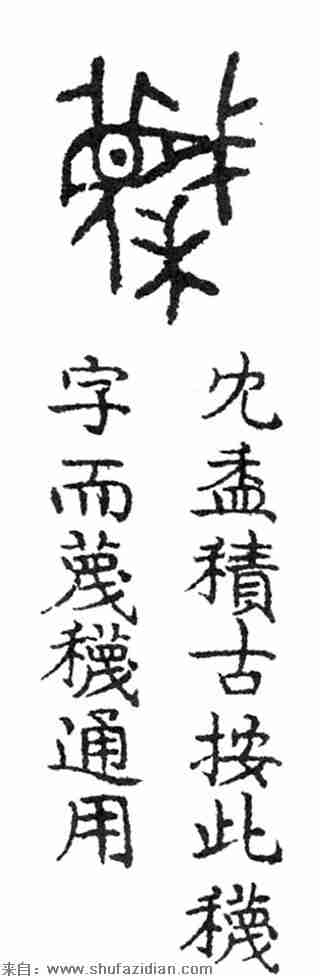 冘盉積古按此穖
字而蔑穖通用
来自：www.shufazidian.com